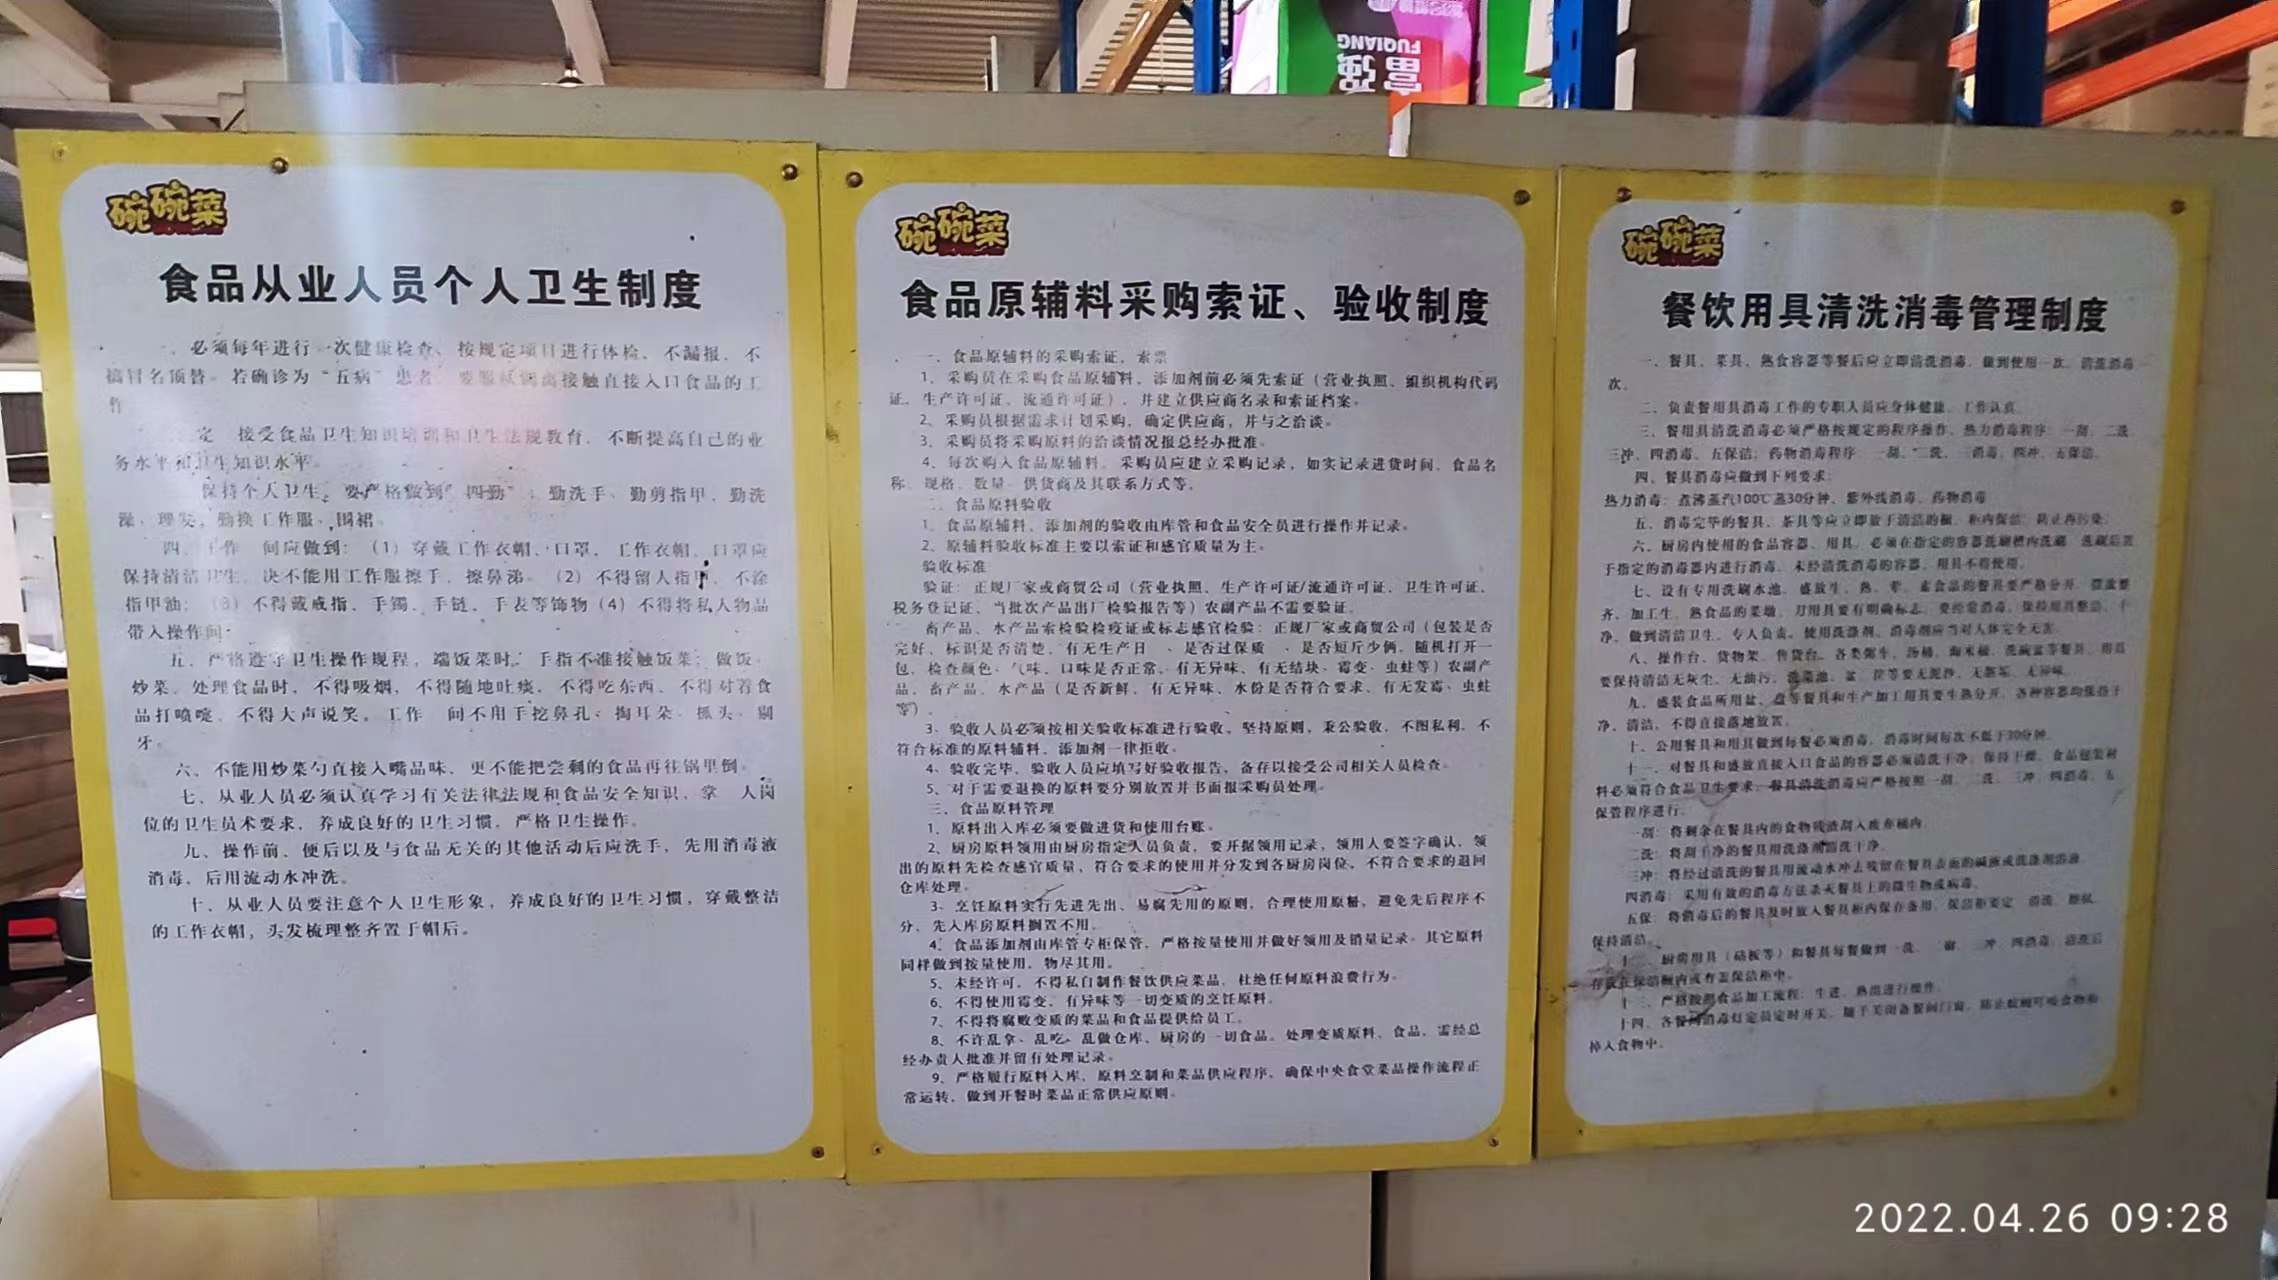 富强
FUQIANG
碗碗菜
食品从业人员个人卫生制度
一、必须每年进行一次健康检查、按规定项目进行体检，不漏报，不
搞冒名顶替。若确诊为“五病”患者，要服从调离接触直接入口食品的工
作
定 接受食品卫生知识培训和卫生法规教育，不断提高自己的业
务水平和卫生知识水平。
保持个人卫生，要严格做到“四勤”：勤洗手、勤剪指甲，勤洗
澡、理发，勤换工作服、围裙。
四、工作 间应做到：（1）穿戴工作衣帽、口罩，工作衣帽、口罩应
保持清洁卫生，决不能用工作服擦手，擦鼻涕。（2）不得留人指甲，不涂
指甲油；（3）不得戴戒指、手镯、手链、手表等饰物（4）不得将私人物品
带入操作间
五、严格遵守卫生操作规程，端饭菜时，手指不准接触饭菜；做饭、
炒菜、处理食品时，不得吸烟，不得随地吐痰，不得吃东西，不得对着食
品打喷嚏，不得大声说笑。工作 间不用手挖鼻孔、掏耳朵、抓头、剔
牙。
六、不能用炒菜勺直接入嘴品味，更不能把尝剩的食品再往锅里倒。
七、从业人员必须认真学习有关法律法规和食品安全知识，掌 人岗
位的卫生员术要求，养成良好的卫生习惯，严格卫生操作。
九、操作前、便后以及与食品无关的其他活动后应洗手，先用消毒液
消毒，后用流动水冲洗。
十、从业人员要注意个人卫生形象，养成良好的卫生习惯，穿戴整洁
的工作衣帽，头发梳理整齐置于帽后。
碗碗菜
食品原辅料采购索证、验收制度
一、食品原辅料的采购索证，索票
1、采购员在采购食品原辅料，添加剂前必须先索证（营业执照、组织机构代码
证、生产许可证、流通许可证），并建立供应商名录和索证档案。
2、采购员根据需求计划采购，确定供应商，并与之洽谈。
3、采购员将采购原料的洽谈情况报总经办批准。
4、每次购入食品原辅料，采购员应建立采购记录，如实记录进货时间、食品名
称、规格、数量、供货商及其联系方式等。
二、食品原料验收
1、食品原辅料，添加剂的验收由库管和食品安全员进行操作并记录。
2、原辅料验收标准主要以索证和感官质量为主。
验收标准
验证：正规厂家或商贸公司（营业执照、生产许可证/流通许可证、卫生许可证、
税务登记证、当批次产品出厂检验报告等）农副产品不需要验证。
畜产品、水产品索检验检疫证或标志感官检验：正规厂家或商贸公司（包装是否
完好、标识是否清楚、有无生产日 、是否过保质 、是否短斤少俩，随机打开一
包，检查颜色、气味、口味是否正常，有无异味、有无结块、霉变、虫蛀等）农副产
品、畜产品、水产品（是否新鲜、有无异味、水份是否符合要求、有无发霉、虫蛀
等）。
3、验收人员必须按相关验收标准进行验收，坚持原则，秉公验收，不图私利，不
符合标准的原料辅料，添加剂一律拒收。
4、验收完毕，验收人员应填写好验收报告，备存以接受公司相关人员检查。
5、对于需要退换的原料要分别放置并书面报采购员处理。
三、食品原料管理
1、原料出入库必须要做进货和使用台账。
2、厨房原料领用由厨房指定人员负责，要开据领用记录，领用人要签字确认，领
出的原料先检查感官质量，符合要求的使用并分发到各厨房岗位，不符合要求的退回
仓库处理。
3、烹饪原料实行先进先出、易腐先用的原则，合理使用原料，避免先后程序不
分，先入库房原料搁置不用。
4、食品添加剂由库管专柜保管，严格按量使用并做好领用及销量记录。其它原料
同样做到按量使用，物尽其用。
5、未经许可，不得私自制作餐饮供应菜品，杜绝任何原料浪费行为。
6、不得使用霉变、有异味等一切变质的烹饪原料。
7、不得将腐败变质的菜品和食品提供给员工。
8、不许乱拿、乱吃、乱做仓库、厨房的一切食品。处理变质原料、食品，需经总
经办责人批准并留有处理记录。
9、严格履行原料入库、原料烹制和菜品供应程序，确保中央食堂菜品操作流程正
常运转，做到开餐时菜品正常供应原则。
碗碗菜
餐饮用具清洗消毒管理制度
一、餐具、菜具、熟食容器等餐后应立即清洗消毒，做到使用一次，清洗消毒
次。
二、负责餐用具消毒工作的专职人员应身体健康，工作认真。
三、餐用具清洗消毒必须严格按规定的程序操作，热力消毒程序：一刮、二洗
三冲、四消毒、五保洁；药物消毒程序：一刮、二洗、三消毒、四冲、五保洁。
四、餐具消毒应做到下列要求：
热力消毒：煮沸蒸汽100℃蒸30分钟、紫外线消毒、药物消毒
五、消毒完毕的餐具、茶具等应立即放于清洁的橱、柜内保洁，防止再污染。
六、厨房内使用的食品容器、用具，必须在指定的容器洗刷槽内洗刷，洗刷后置
于指定的消毒器内进行消毒，未经清洗消毒的容器、用具不得使用。
七、设有专用洗刷水池，盛放生、熟、荤、素食品的餐具要严格分开，摆放整
齐。加工生、熟食品的菜墩、刀用具要有明确标志，要经常消毒，保持用具整洁、干
净，做到清洁卫生，专人负责。使用洗涤剂、消毒剂应当对人体完全无害。
八、操作台、货物架、售货台、各类粥车、汤桶、淘米板、洗碗盆等餐具、用具
要保持清洁无灰尘，无油污，洗菜池、盆、筐等要无泥沙、无脏垢、无异味。
九、盛装食品所用盆、盘等餐具和生产加工用具要生熟分开，各种容器均保持干
净，清洁，不得直接落地放置。
十、公用餐具和用具做到每餐必须消毒，消毒时间每次不低于30分钟。
十一、对餐具和盛放直接入口食品的容器必须清洗干净，保持干燥，食品包装材
料必须符合食品卫生要求，餐具清洗消毒应严格按照一刮、二洗、三冲、四消毒、五
保管程序进行。
一刮：将剩余在餐具内的食物残渣刮入废弃桶内。
二洗：将刮干净的餐具用洗涤剂清洗干净。
三冲：将经过清洗的餐具用流动水冲去残留在餐具表面的碱液或洗涤剂溶液。
四消毒：采用有效的消毒方法杀灭餐具上的微生物或病毒。
五保：将消毒后的餐具及时放入餐具柜内保存备用，保洁柜要定 清洗、擦拭，
保持清洁。
十二、厨房用具（砧板等）和餐具每餐做到一洗、 、三冲、四消毒，清洗后
存放在保洁橱内或有盖保洁柜中。
十三、严格按照食品加工流程：生进、熟出进行操作。
十四、各餐间消毒灯定员定时开关，随手关闭备餐间门窗，防止蚊蝇叮咬食物和
掉入食物中。
2022.04.26 09:28